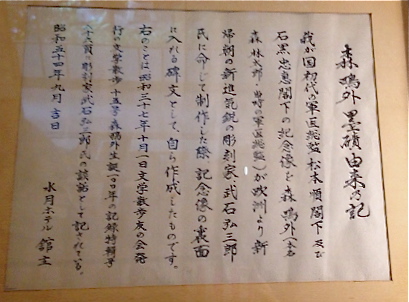 森鴎外墨蹟由来乃記
我が国初代軍医総監松本順閣下及び
石黒忠悳閣下の記念像を森鴎外(本名
森林太郎 当時軍医総監)が欧州より新
帰朝の新進気鋭の彫刻家武石弘三郎
氏に命じて制作した際 記念像の裏面
に入れる碑文として、自ら作成したものです。
右のことは昭和三十七年十月一日文学散歩友の会発
行の文学散歩十五号森鴎外生誕一〇〇年の記録特輯号
六十五頁に彫刻家武石弘三郎氏の談話として記されている。
昭和五十四年九月吉日
水月ホテル館主